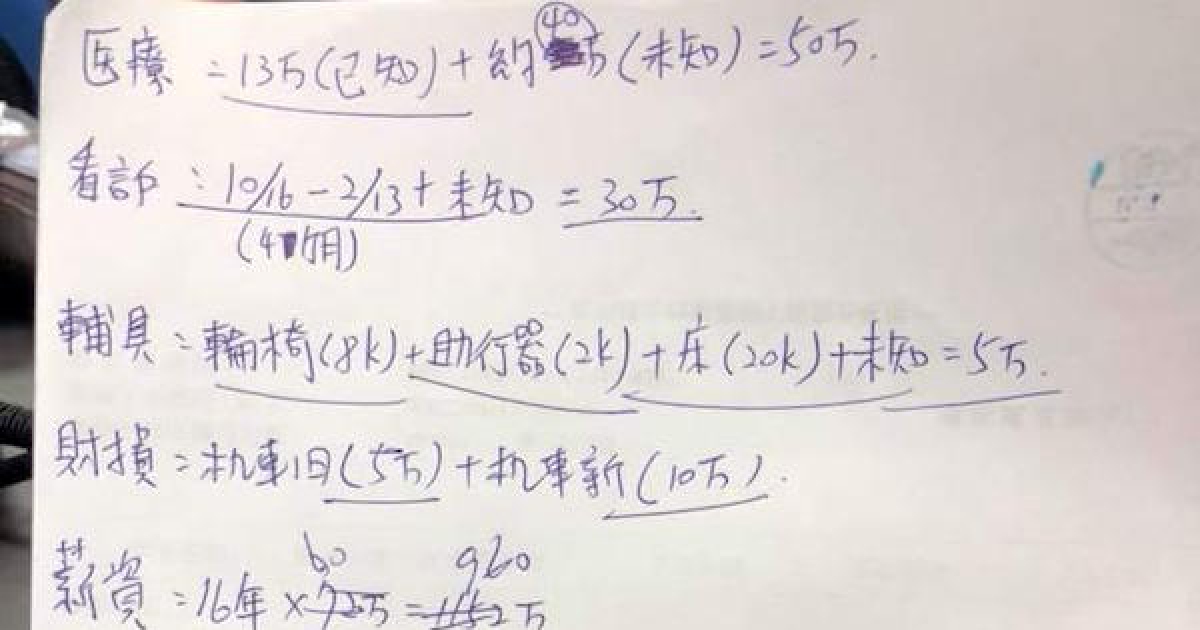 医療：13万(已知)+約40万(未知)=50万.
看護：10/16-2/13+未知=30万.
(4個月)
輔具：輪椅(8k)+助行器(2k)+床(20k)+未知=5万.
財損：机車旧(5万)+机車新(10万).
60 960
薪資=16年×72万=1152万